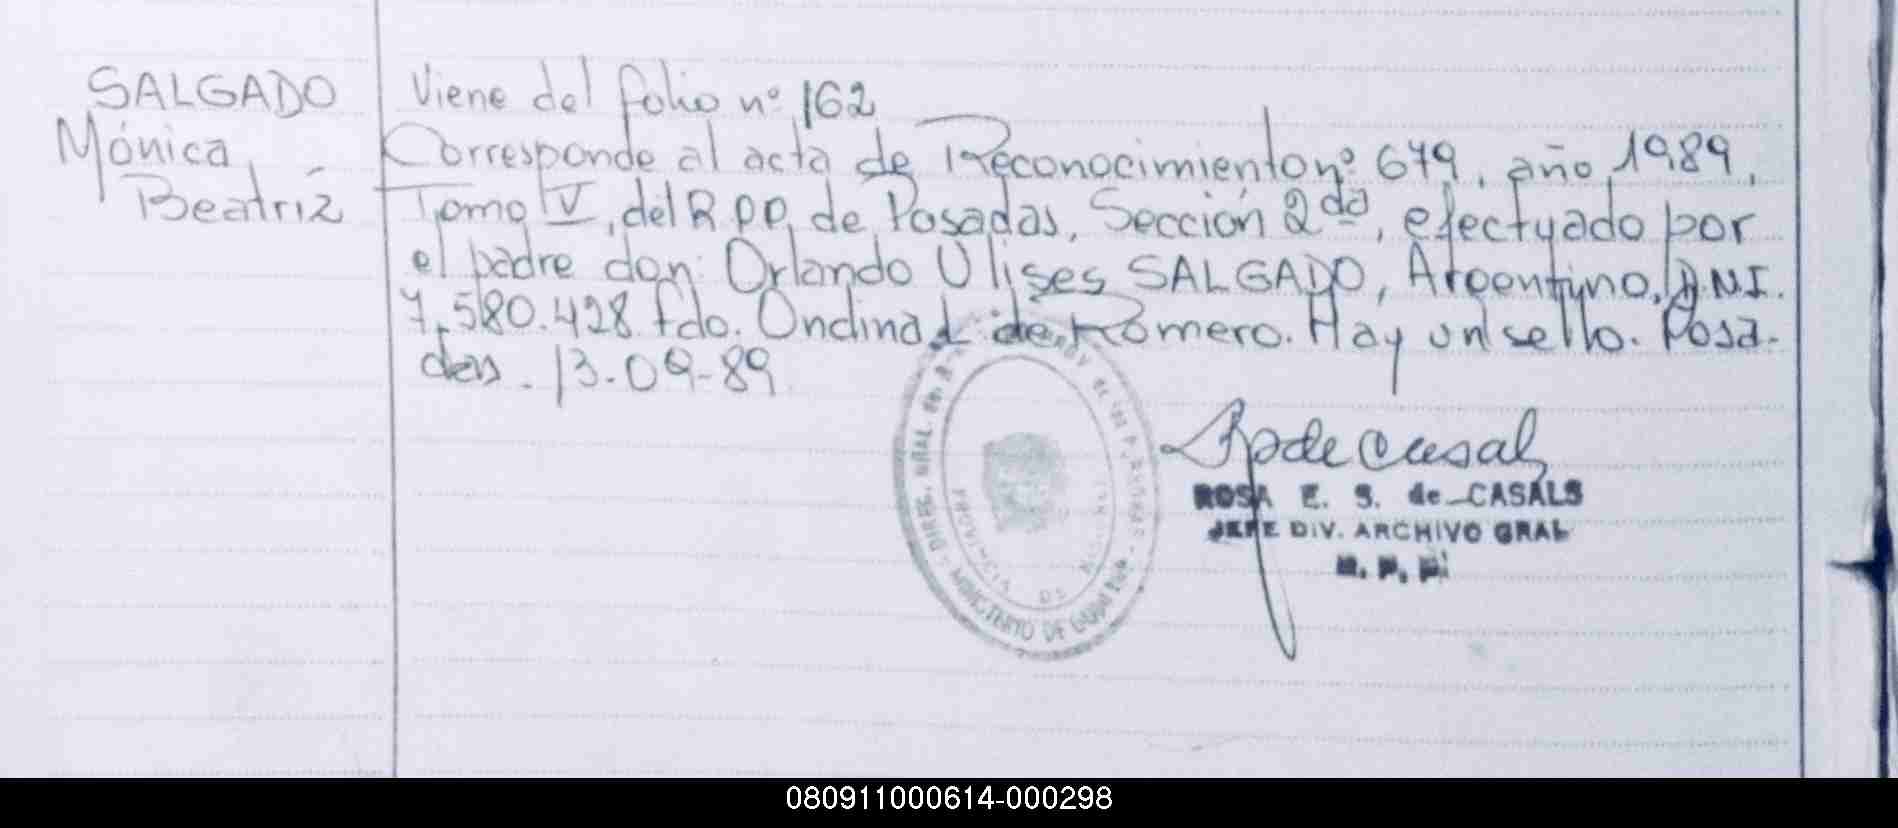 SALGADO
Mónica
Beatríz
Viene del folio nº 162
Corresponde al acta de Reconocimiento nº 679, año 1989,
Tomo V, del R.P.P. de Posadas, Sección 2da, efectuado por
el padre don: Orlando Ulises SALGADO, Argentino, D.N.I.
7.580.428 fdo. Ondina L. de Romero. Hay un sello. Posa-
das. 13-09-89
DIREC. GRAL. de
de las P.
MINISTERIO DE GOBIERNO
PROVINCIA DE MISIONES
R de Casals
ROSA E. S. de CASALS
JEFE DIV. ARCHIVO GRAL
R. P. P.
080911000614-000298